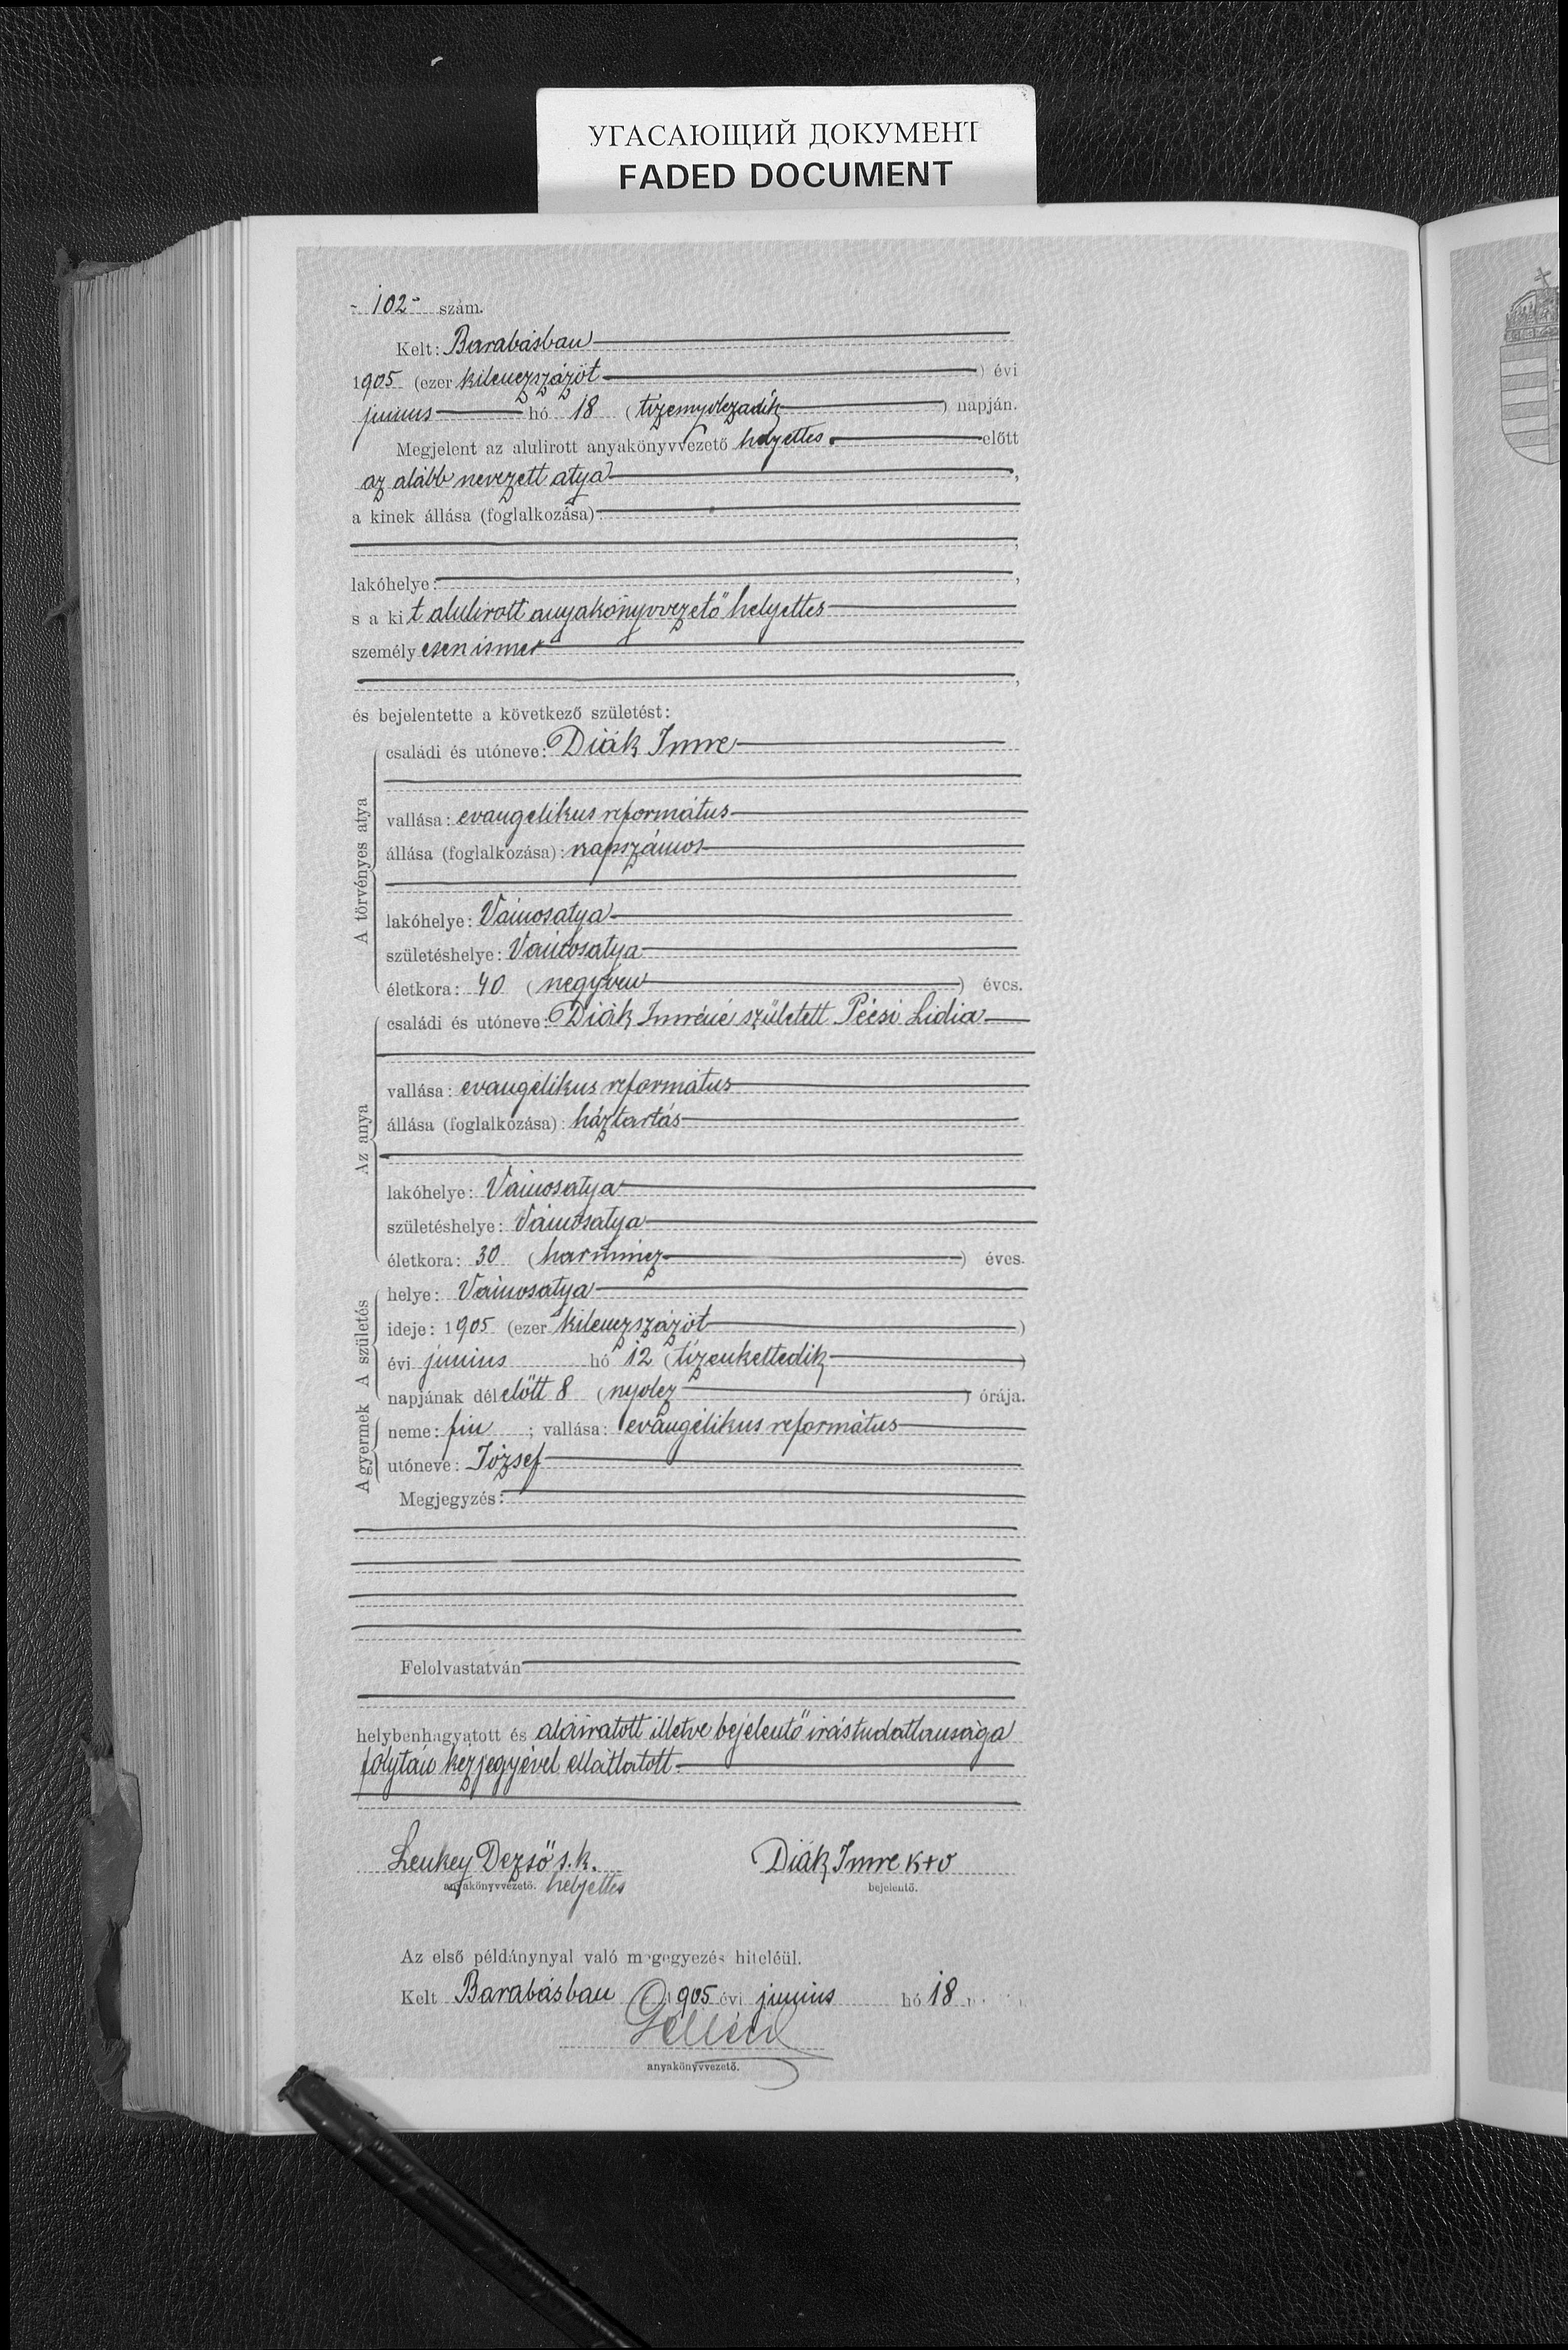 УГАСАЮЩИЙ ДОКУМЕНТ
FADED DOCUMENT
- 102 - szám.
Kelt: Barabásban
1905 (ezer kilenczszázöt) évi
junius hó 18 (tizennyolczadik) napján.
Megjelent az alulirott anyakönyvvezető helyettes előtt
az alább nevezett atya,
a kinek állása (foglalkozása):
lakóhelye:
s a kit alulirott anyakönyvvezető helyettes
személyesen ismer
és bejelentette a következő születést:
A törvényes atya
családi és utóneve: Diák Imre
vallása: evangelikus református
állása (foglalkozása): napszámos
lakóhelye: Vámosatya
születéshelye: Vámosatya
életkora: 40 (negyven) éves.
Az anya
családi és utóneve: Diák Imréné született Pécsi Lidia
vallása: evangélikus református
állása (foglalkozása): háztartás
lakóhelye: Vámosatya
születéshelye: Vámosatya
életkora: 30 (harmincz) éves.
A születés
helye: Vámosatya
ideje: 1905 (ezer kilenczszázöt)
évi junius hó 12 (tizenkettedik)
napjának délelőtt 8 (nyolcz) órája.
A gyermek
neme: fiu; vallása: evangélikus református
utóneve: József
Megjegyzés:
Felolvastatván
helybenhagyatott és aláiratott illetve bejelentő irástudatlansága
folytán kézjegyével elláttatott.
Lenkey Dezső s.k. Diák Imre K+V
anyakönyvvezető. helyettes bejelentő.
Az első példánynyal való megegyezés hiteléül.
Kelt Barabásban 1905 évi junius hó 18
anyakönyvvezető.